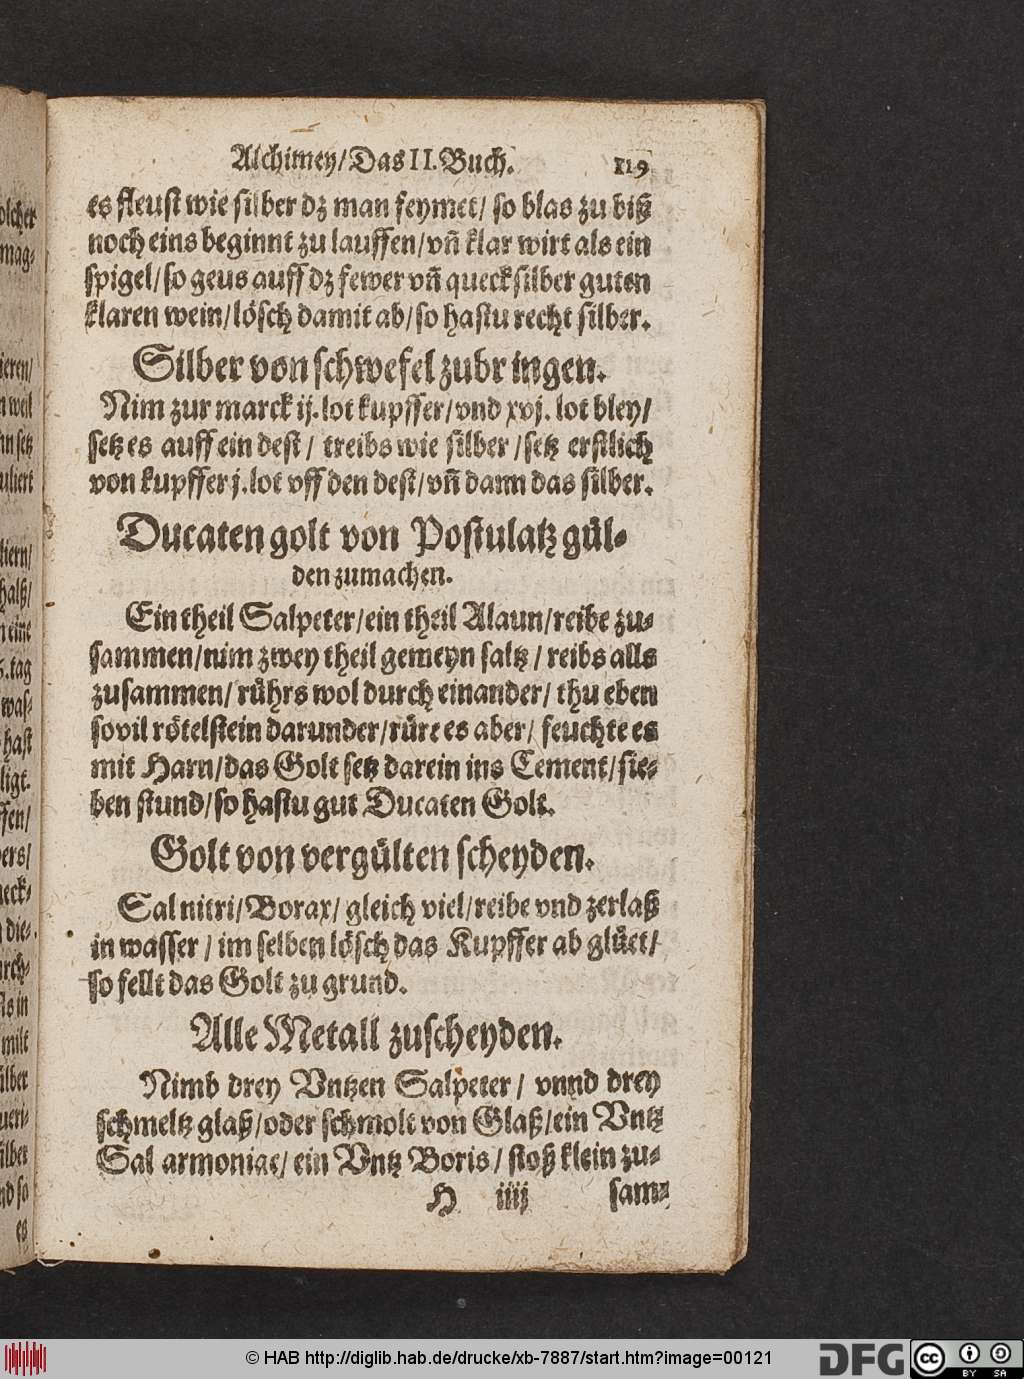 Alchimey/Das II. Buch. 119
es fleust wie silber dz man feymet/ so blas zu biß
noch eins beginnt zu lauffen/vñ klar wirt als ein
spigel/so geus auff dz fewer vñ quecksilber guten
klaren wein/lösch damit ab/so hastu recht silber.
Silber von schwefel zubringen.
Nim zur marck ij. lot kupffer/vnd xvj. lot bley/
setz es auff ein dest/ treibs wie silber/setz erstlich
von kupffer j. lot vff den dest/vñ dann das silber.
Ducaten golt von Postulatz gül-
den zumachen.
Ein theil Salpeter/ein theil Alaun/reibe zu-
sammen/nim zwey theil gemeyn saltz/ reibs alls
zusammen/ rührs wol durch einander/ thu eben
sovil rötelstein darunder/rüre es aber/ feuchte es
mit Harn/das Golt setz darein ins Cement/sie-
ben stund/so hastu gut Ducaten Golt.
Golt von vergülten scheyden.
Sal nitri/Borax/ gleich viel/reibe vnd zerlaß
in wasser/ im selben lösch das Kupffer ab glüet/
so fellt das Golt zu grund.
Alle Metall zuscheyden.
Nimb drey Vntzen Salpeter/ vnnd drey
schmeltz glaß/oder schmolt von Glaß/ein Vntz
Sal armoniac/ ein Vntz Boris/ stoß klein zu-
H iiij sam-
olcher
mag-
ieren/
n weil
uliert
tiern/
halß/
tag
was-
hast
ligt.
ffen/
ers/
ueck-
die-
rch-
ls in
milt
ilber
ueri-
ilber
nd so
es
© HAB http://diglib.hab.de/drucke/xb-7887/start.htm?image=00121
DFG
cc
BY SA